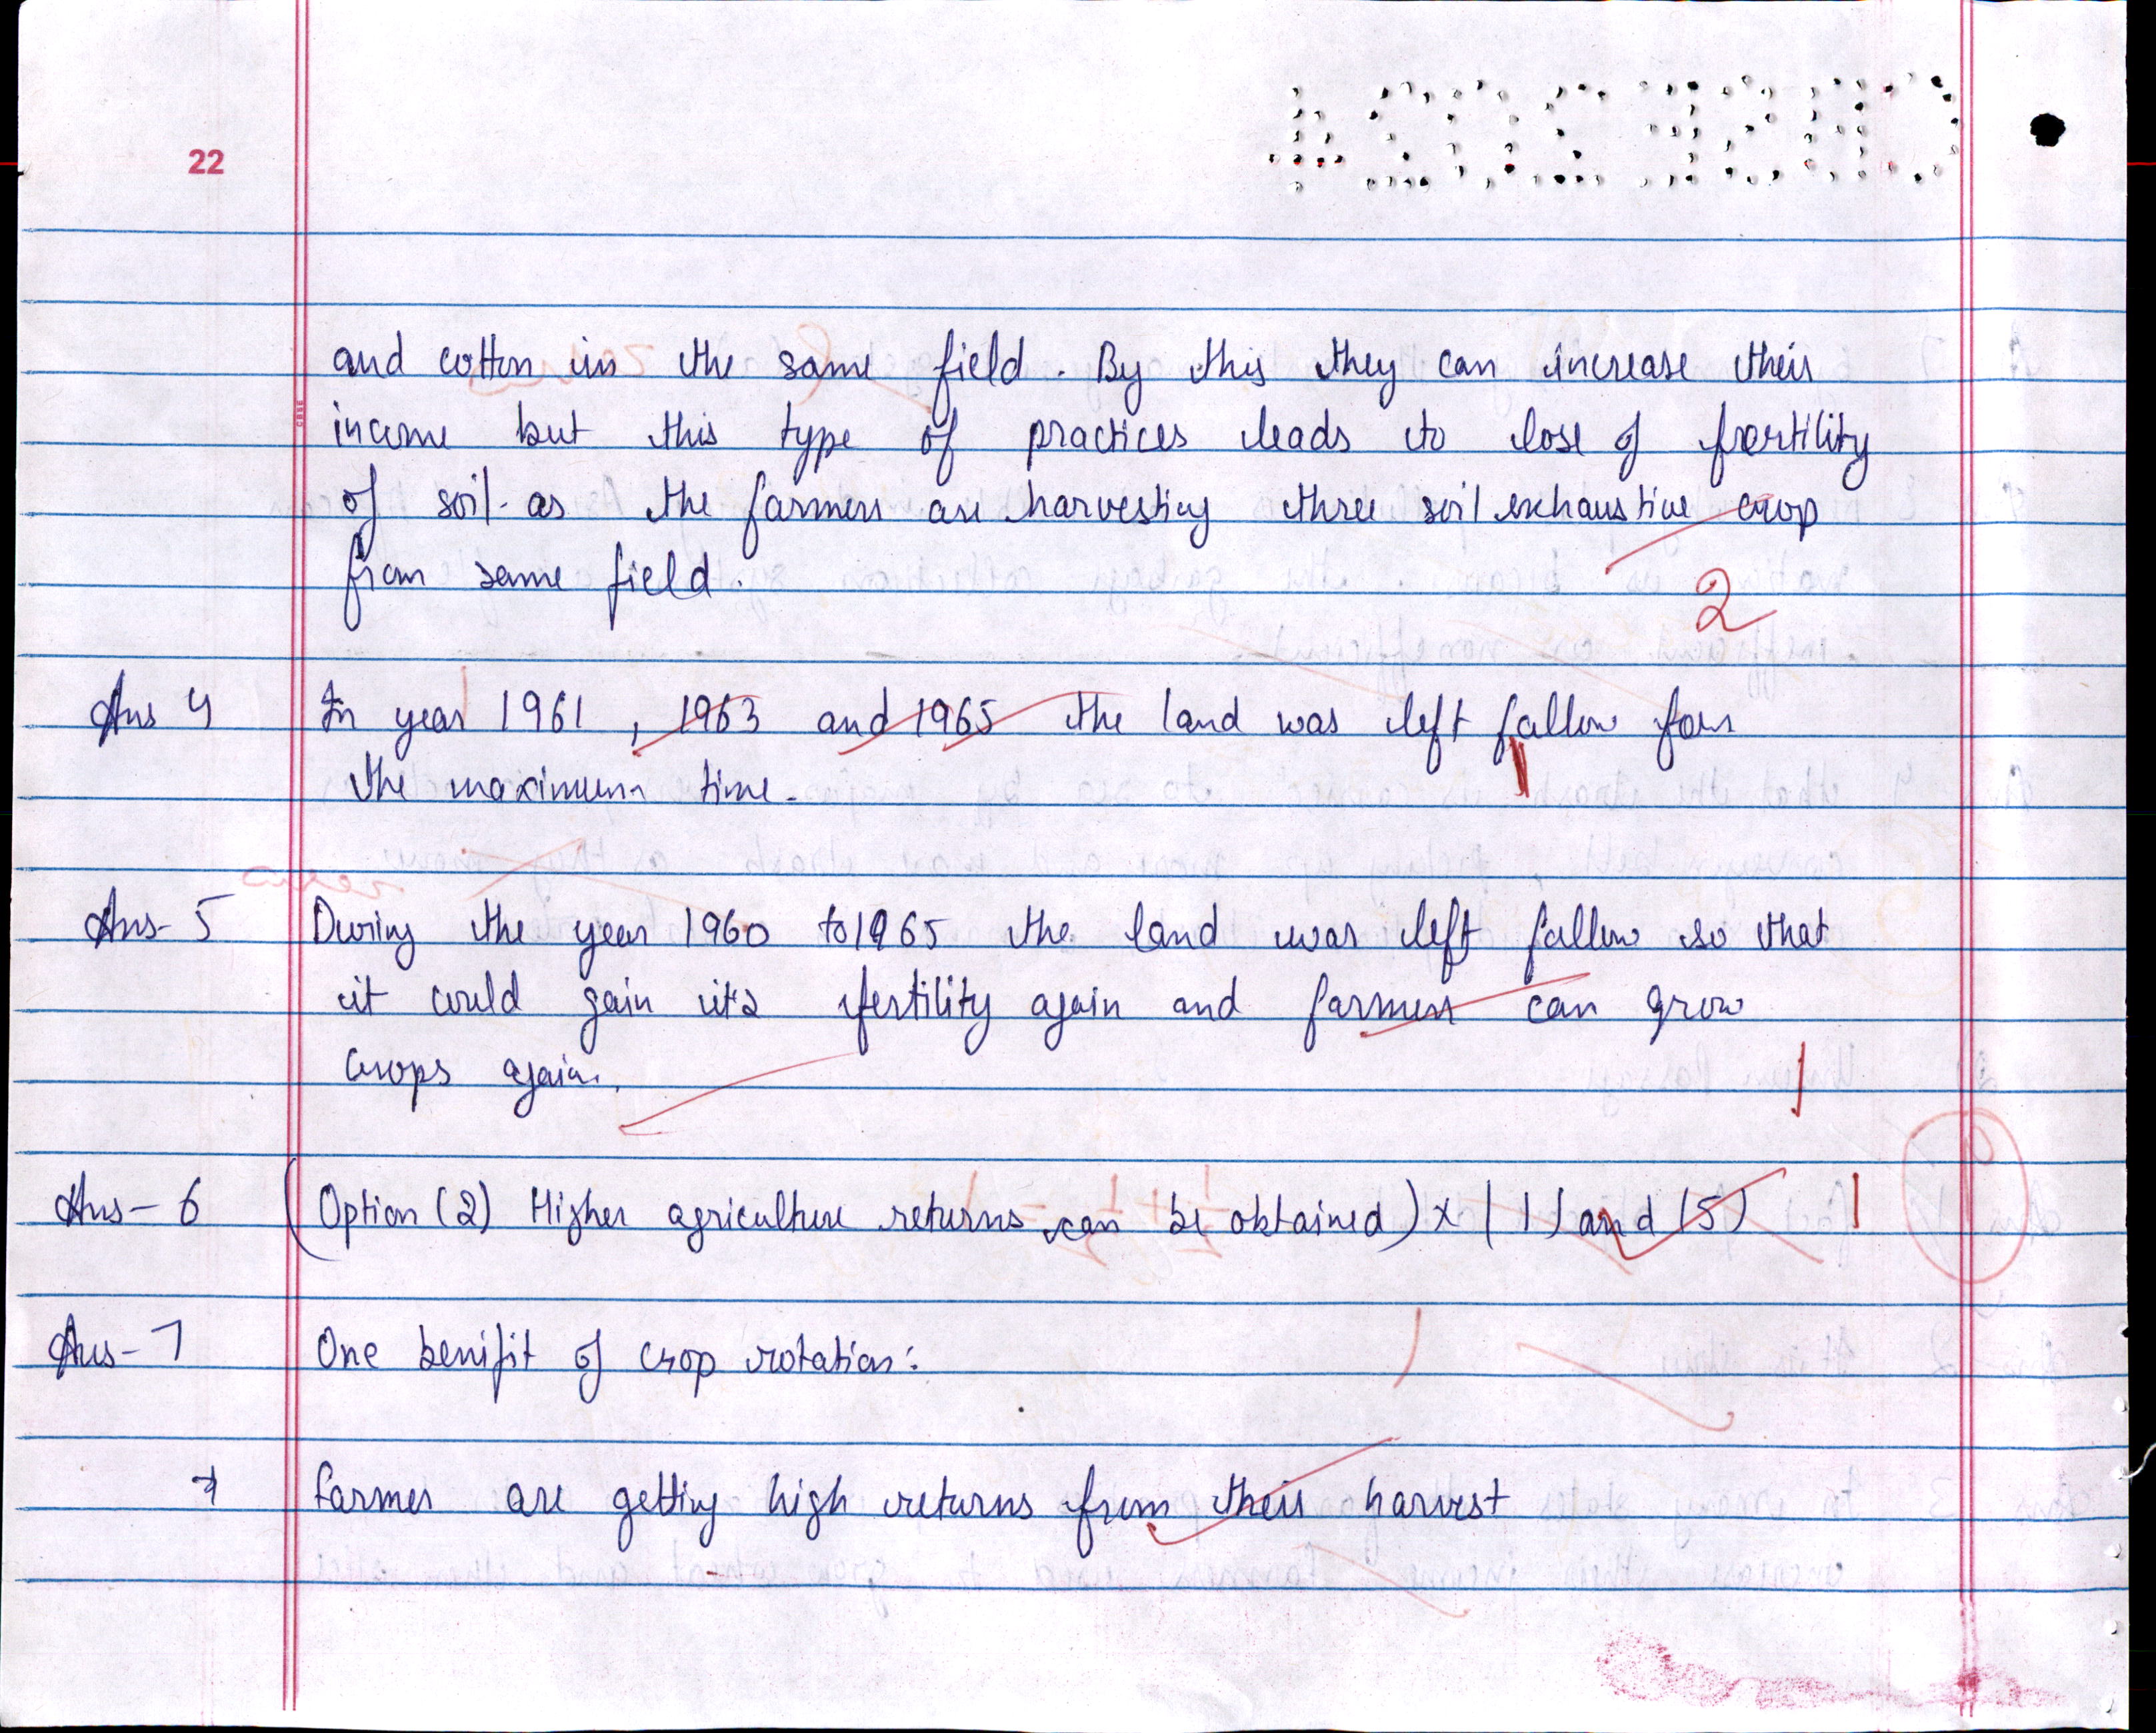 22
and cotton in the same field. By this they can increase their
income but this type of practices leads to lose of fertility
of soil. as the farmers are harvesting three soil exhaustive crop
from same field.
2
Ans 4 In year 1961, 1963 and 1965 the land was left fallow for
the maximum time.
1
Ans-5 During the year 1960 to 1965 the land was left fallow so that
it could gain its fertility again and farmers can grow
crops again.
1
Ans-6 (Option (2) Higher agriculture returns can be obtained) x (1) and (5) 1
Ans-7 One benifit of crop rotation: 1
* farmer are getting high returns from their harvest